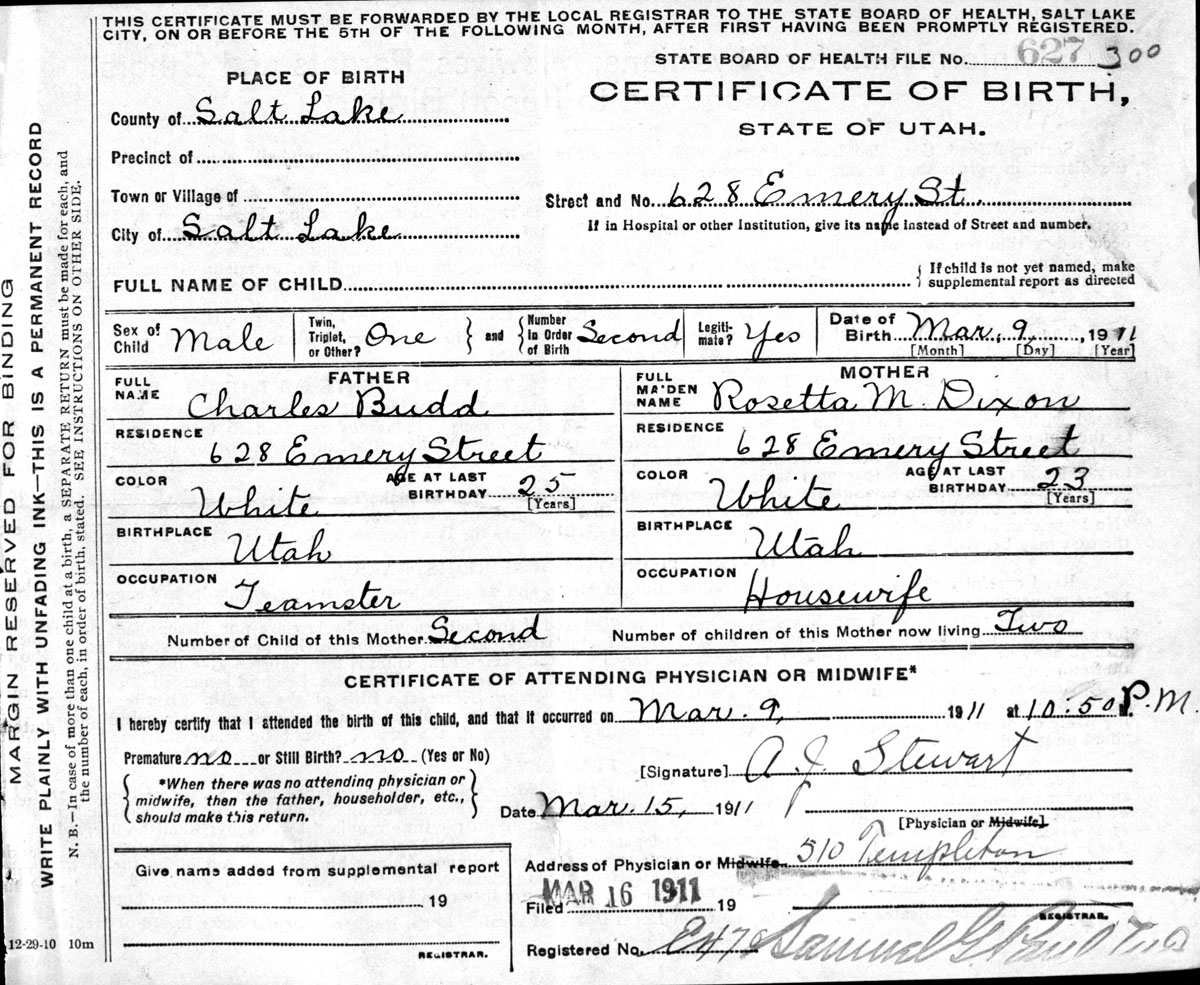 THIS CERTIFICATE MUST BE FORWARDED BY THE LOCAL REGISTRAR TO THE STATE BOARD OF HEALTH, SALT LAKE
CITY, ON OR BEFORE THE 5TH OF THE FOLLOWING MONTH, AFTER FIRST HAVING BEEN PROMPTLY REGISTERED.
STATE BOARD OF HEALTH FILE NO. 627 300
PLACE OF BIRTH
CERTIFICATE OF BIRTH,
STATE OF UTAH.
County of Salt Lake
Precinct of
Town or Village of
Street and No. 628 Emery St.
City of Salt Lake
If in Hospital or other Institution, give its name instead of Street and number.
FULL NAME OF CHILD
If child is not yet named, make
supplemental report as directed
Sex of Child Male
Twin, Triplet, or Other? One
and Number in Order of Birth Second
Legitimate? Yes
Date of Birth Mar. 9, 1911
[Month] [Day] [Year]
FATHER
FULL NAME Charles Budd
RESIDENCE
628 Emery Street
COLOR White AGE AT LAST BIRTHDAY 25 [Years]
BIRTHPLACE Utah
OCCUPATION Teamster
MOTHER
FULL MAIDEN NAME Rosetta M. Dixon
RESIDENCE
628 Emery Street
COLOR White AGE AT LAST BIRTHDAY 23 [Years]
BIRTHPLACE Utah
OCCUPATION Housewife
Number of Child of this Mother Second Number of children of this Mother now living Two
CERTIFICATE OF ATTENDING PHYSICIAN OR MIDWIFE*
I hereby certify that I attended the birth of this child, and that it occurred on Mar. 9, 1911 at 10:50 P.M.
Premature no or Still Birth? no (Yes or No)
*When there was no attending physician or
midwife, then the father, householder, etc.,
should make this return.
[Signature] A. J. Stewart
Date Mar. 15, 1911
[Physician or Midwife]
Address of Physician or Midwife 510 Templeton
Give name added from supplemental report
19
REGISTRAR.
Filed MAR 16 1911 19
REGISTRAR.
Registered No. E47
12-29-10 10m
MARGIN RESERVED FOR BINDING
WRITE PLAINLY WITH UNFADING INK—THIS IS A PERMANENT RECORD
N. B.—In case of more than one child at a birth, a SEPARATE RETURN must be made for each, and
the number of each, in order of birth, stated. SEE INSTRUCTIONS ON OTHER SIDE.